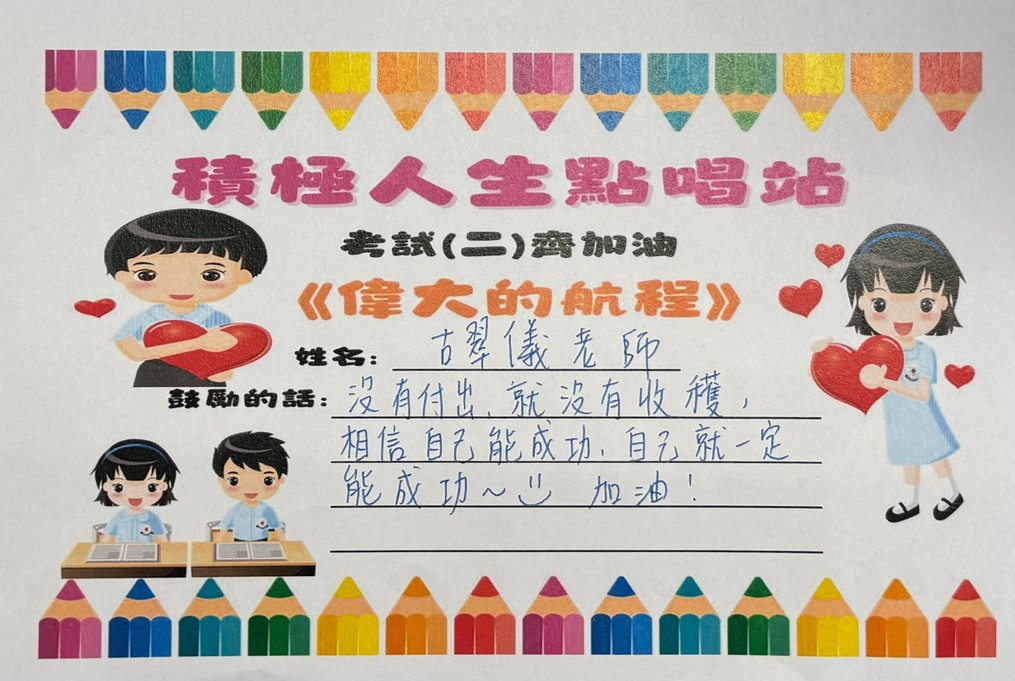 積極人生點唱站
考試(二)齊加油
《偉大的航程》
姓名: 古翠儀老師
鼓勵的話: 沒有付出、就沒有收穫，
相信自己能成功、自己就一定
能成功~ 加油！